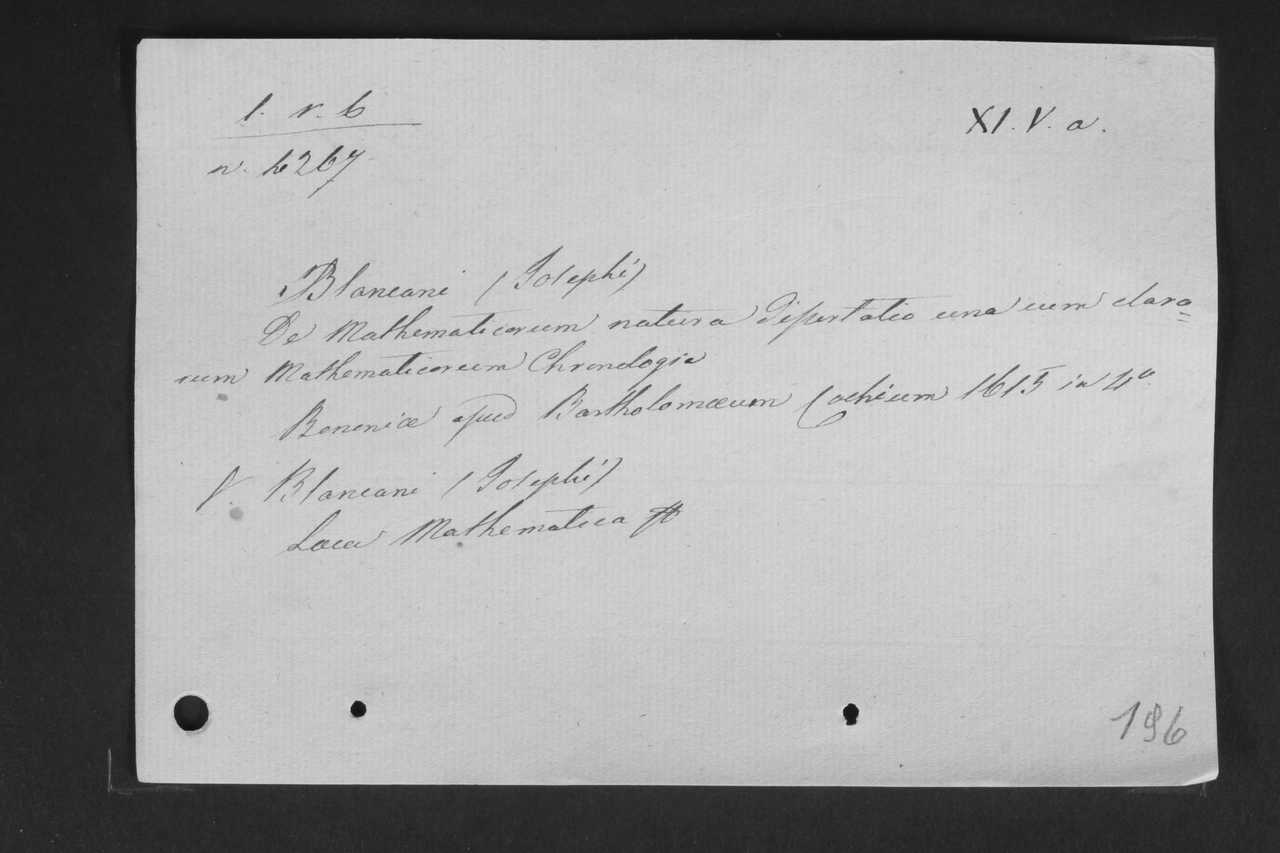 l. v. 6
XI. V. a.
n. 4267
Blancani (Josephi)
De Mathematicarum natura Dissertatio una cum claro=
rum Mathematicorum Chronologia
Bononiæ apud Bartholomæum Cochium 1615 in 4º
V. Blancani (Josephi)
Loca Mathematica
196